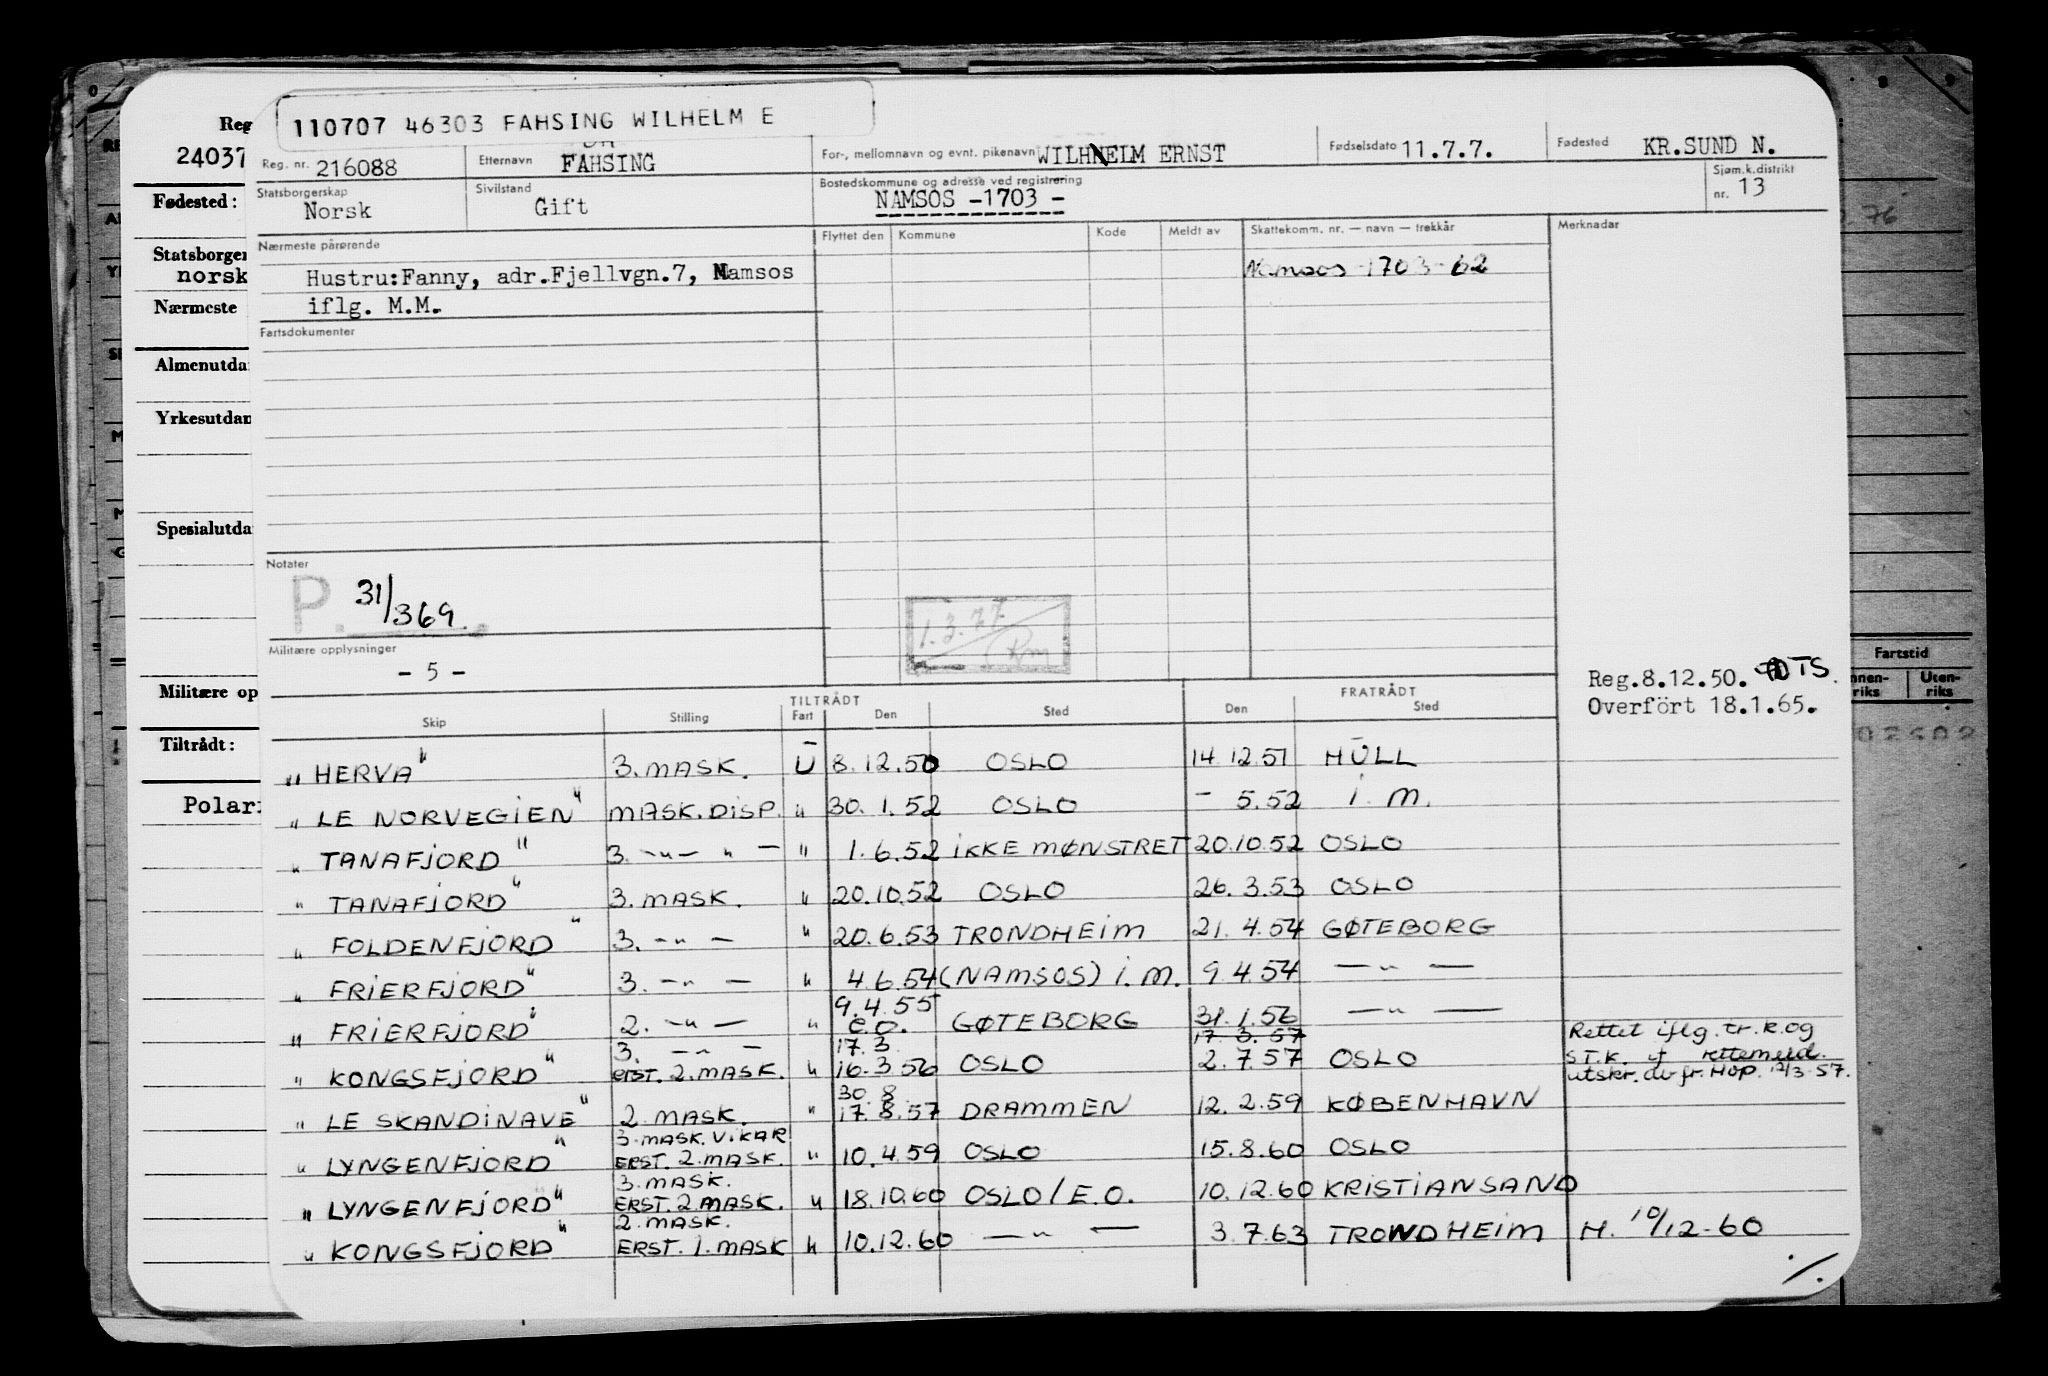 110707 46303 FAHSING WILHELM E
Reg
24037
Fødested:
Statsborger
norsk
Nærmeste
Almenutda
Yrkesutdan
Spesialutda
Militære op
Tiltrådt:
Polari
Reg. nr. 216088
Etternavn FAHSING
For-, mellomnavn og evnt. pikenavn WILHELM ERNST
Fødselsdato 11.7.7.
Fødested KR.SUND N.
Statsborgerskap Norsk
Sivilstand Gift
Bostedskommune og adresse ved registrering
NAMSOS -1703 -
Sjøm.k.distrikt
nr. 13
Nærmeste pårørende
Hustru:Fanny, adr.Fjellvgn.7, Namsos
iflg. M.M.
Flyttet den Kommune Kode Meldt av Skattekomm. nr. — navn — trekkår Merknadar
Namsos 1703-62
Fartsdokumenter
Notater
P. 31/369.
1.3.77
Militære opplysninger
- 5 -
Reg.8.12.50. TS.
Overført 18.1.65.
Fartstid
nnen-riks Uten-riks
TILTRÅDT FRATRÅDT
Skip Stilling Fart Den Sted Den Sted
" HERVA" 3. MASK. U 8.12.50 OSLO 14.12.51 HULL
" LE NORVEGIEN" MASK.DISP. " 30.1.52 OSLO - 5.52 i. M.
" TANAFJORD" 3. -"- " - " 1.6.52 IKKE MØNSTRET 20.10.52 OSLO
" TANAFJORD" 3. MASK. " 20.10.52 OSLO 26.3.53 OSLO
" FOLDENFJORD" 3. -"- " 20.6.53 TRONDHEIM 21.4.54 GØTEBORG
" FRIERFJORD" 3. -"- " 4.6.54 (NAMSOS) i.M. 9.4.54 -"-
" FRIERFJORD" 2. -"- " 9.4.55 E.O. GØTEBORG 31.1.56 -"-
" KONGSFJORD" 3. -"- ERST. 2. MASK. " 17.3. 16.3.56 OSLO 17.3.57 2.7.57 OSLO Rettet iflg. tr.k. og
S.T.K. rettemeld.
utskr. av fr. HOP. 12/3-57.
" LE SKANDINAVE" 2. MASK. " 30.8. 17.8.57 DRAMMEN 12.2.59 KØBENHAVN
" LYNGENFJORD" 3. MASK. VIKAR ERST. 2. MASK. " 10.4.59 OSLO 15.8.60 OSLO
" LYNGENFJORD" 3. MASK. ERST. 2. MASK. " 18.10.60 OSLO/E.O. 10.12.60 KRISTIANSAND
" KONGSFJORD" 2. MASK. ERST. 1. MASK " 10.12.60 -"- 3.7.63 TRONDHEIM H. 10/12-60
./.